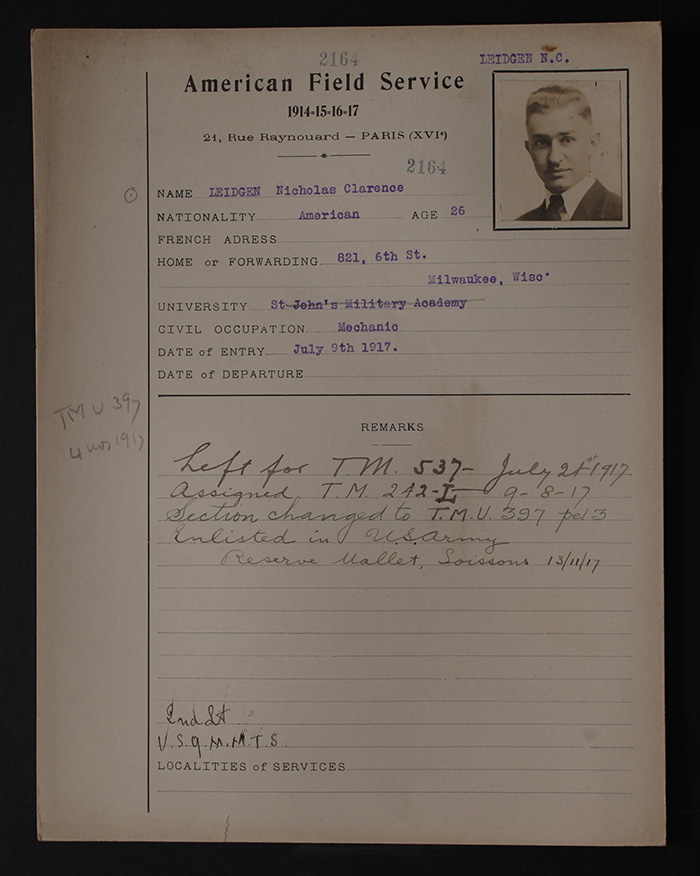 2164
LEIDGEN N.C.
American Field Service
1914-15-16-17
21, Rue Raynouard — PARIS (XVIe)
2164
NAME LEIDGEN Nicholas Clarence
NATIONALITY American AGE 26
FRENCH ADRESS
HOME or FORWARDING 821, 6th St.
Milwaukee, Wisc.
UNIVERSITY St John's Military Academy
CIVIL OCCUPATION Mechanic
DATE of ENTRY July 9th 1917.
DATE of DEPARTURE
TMU 397
4 nov 1917
REMARKS
Left for TM. 537- July 21st 1917
Assigned T.M. 242-L 9-8-17
Section changed to T.M.U. 397 pel 3
Enlisted in U.S. Army
Reserve Mallet, Soissons 13/11/17
2nd Lt
U.S.Q.M.M.T.S.
LOCALITIES of SERVICES